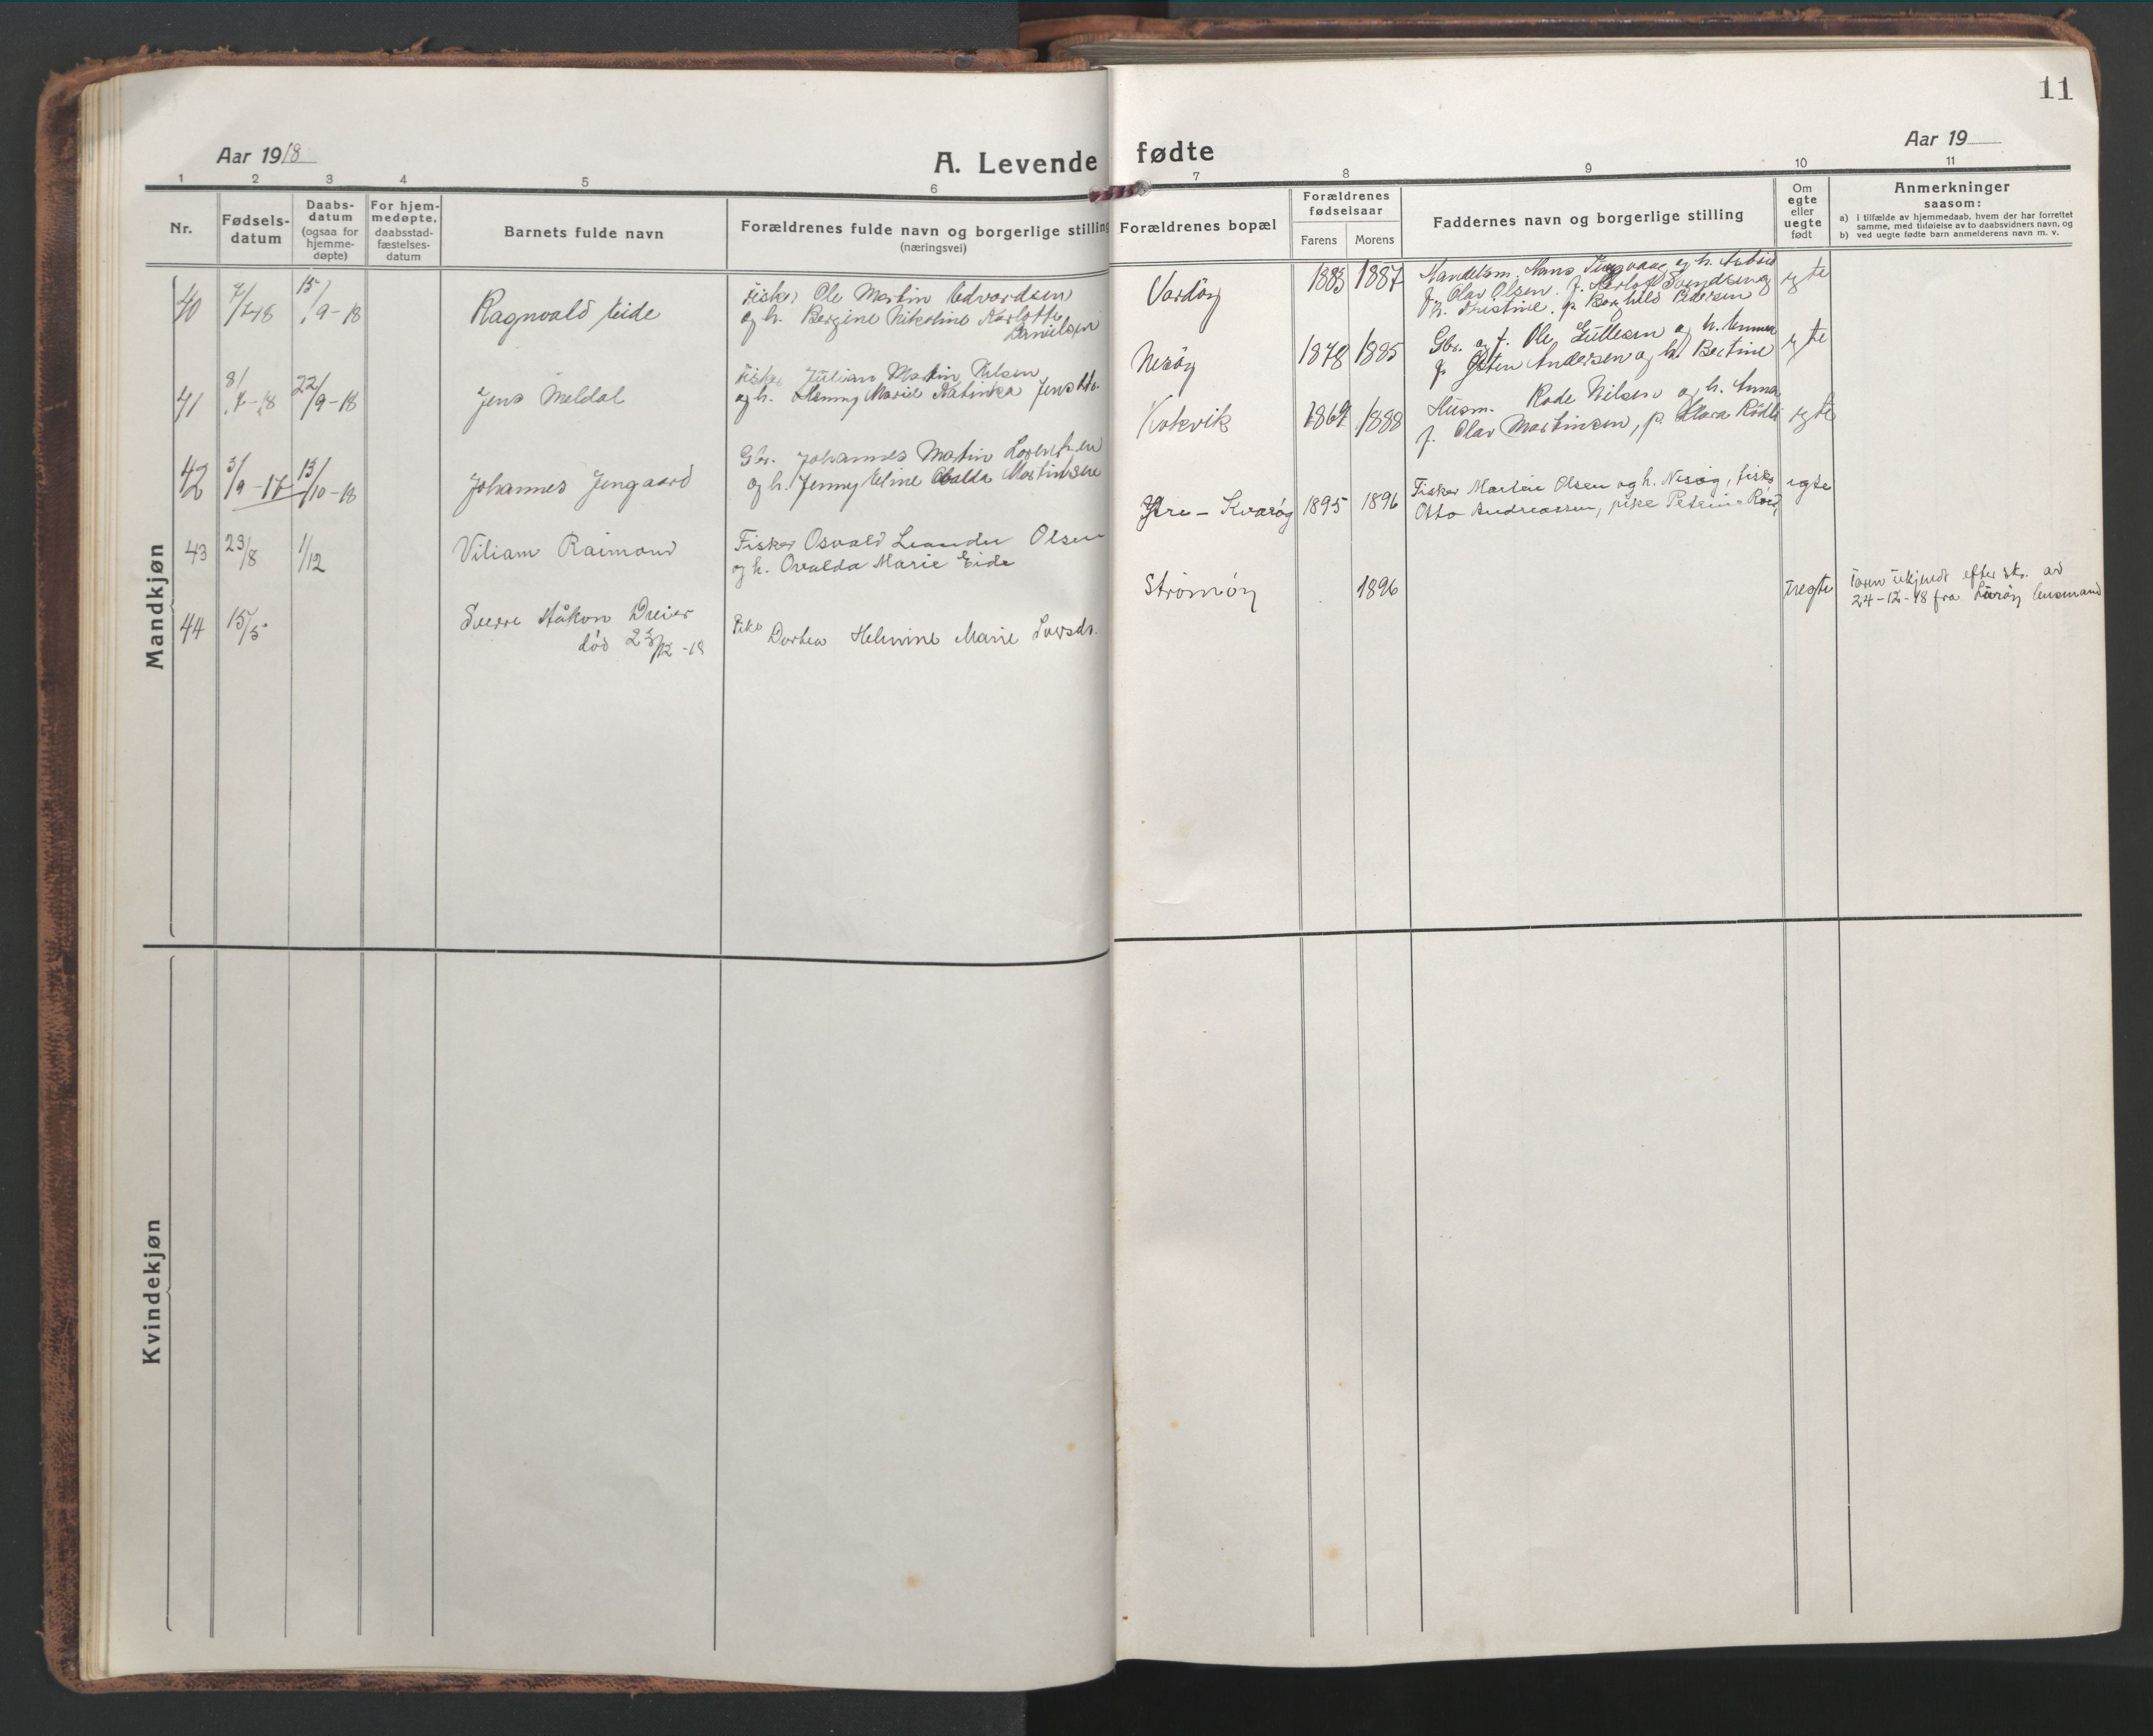 11
Aar 1918
A. Levende fødte
Aar 19
1 2 3 4 5 6 7 8 9 10 11
Nr.
Fødsels-
datum
Daabs-
datum
(ogsaa for
hjemme-
døpte)
For hjem-
medøpte,
daabsstad-
fæstelses-
datum
Barnets fulde navn
Forældrenes fulde navn og borgerlige stilling
(næringsvei)
Forældrenes bopæl
Forældrenes
fødselsaar
Farens Morens
Faddernes navn og borgerlige stilling
Om
egte
eller
uegte
født
Anmerkninger
saasom:
a) i tilfælde av hjemmedaab, hvem der har forrettet
samme, med tilføielse av to daabsvidners navn, og
b) ved uegte fødte barn anmelderens navn m. v.
Mandkjøn
40
7/7-18
15/9-18
Ragnvald Eide
Fisker Ole Martin Edvardsen
og h. Bergine Nikoline Karlotte
Danielsen
Vardöy
1883 1887
og h.
f. Olav Olsen. f. Svendsen og
h. Kristine. p. Borghild Pedersen
egte
41
8/7-18
22/9-18
Jens Meldal
Fisker Julian Martin Nilsen
og h. Henny Marie Katinka Jensdtr.
Nesöy
1878 1885
Gbr. og f. Ole Gullesen og h. Emma
f. Østen Andersen og h. Bertine
egte
42
3/9-17
13/10-18
Johannes Jengaard
Gbr. Johannes Martin Lorentsen
og h. Jenny Eline Ovalda Martinsen
Kvkvik
1864 1888
Husm. Rode Nilsen og h. Anna
f. Olav Martinsen, p. Klara Rödli
egte
43
23/8
1/12
Viliam Raimond
Fisker Osvald Leander Olsen
og h. Ovalda Marie Eide
Ytre-Kvaröy
1895 1896
Fisker Martin Olsen og h. Nesöy, fisker
Otto Andreassen, pike
egte
44
15/5
Sverre Håkon Dreier
död 23/12-18
Pike Dorhea Helmine Marie
Strömöy
1896
uegte
Faren ukjendt efter skr. av
24-12-18 fra Luröy lensmand
Kvindekjøn